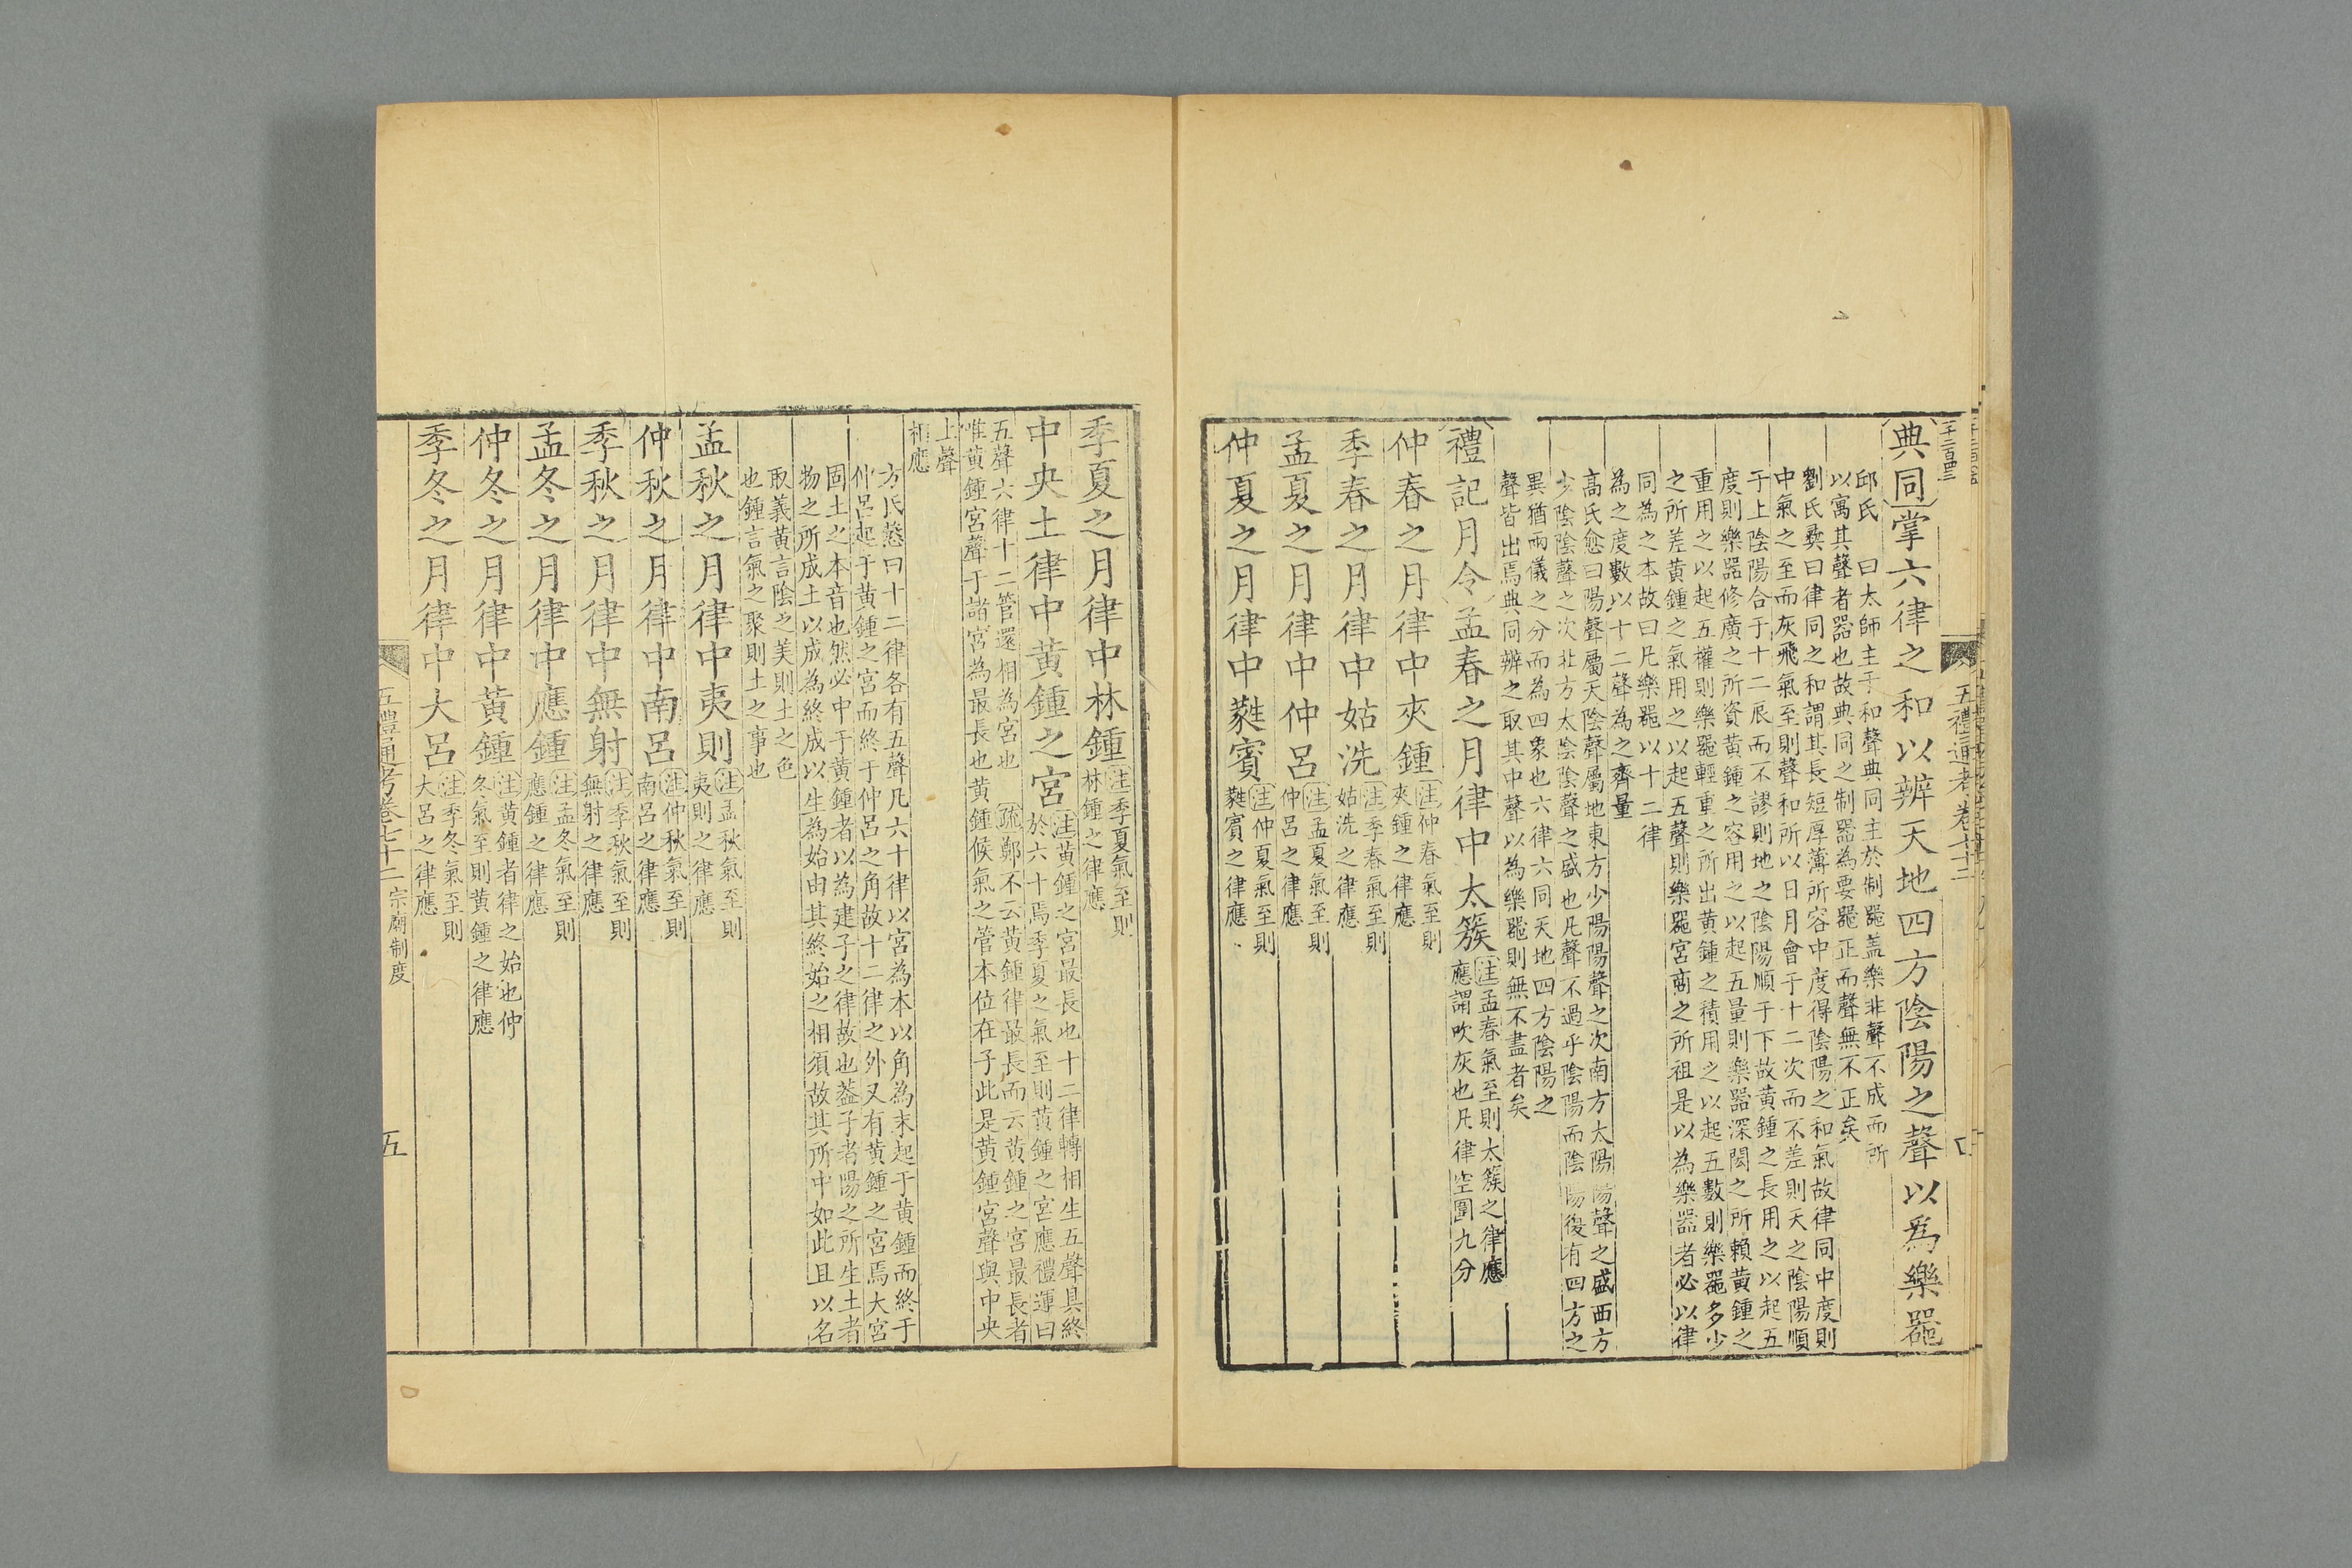 五禮通考卷七十二
典同掌六律之和以辨天地四方陰陽之聲以爲樂器
邱氏 曰太師主于和聲典同主於制器盖樂非聲不成而所
以寓其聲者器也故典同之制器為要器正而聲無不正矣
劉氏彝曰律同之和謂其長短厚薄所容中度得陰陽之和氣故律同中度則
中氣之至而灰飛氣至則聲和所以日月會于十二次而不差則天之陰陽順
于上陰陽合于十二辰而不謬則地之陰陽順于下故黄鍾之長用之以起五
度則樂器修廣之所資黄鍾之容用之以起五量則樂器深閎之所賴黄鍾之
重用之以起五權則樂器輕重之所出黄鍾之積用之以起五數則樂器多少
之所差黄鍾之氣用之以起五聲則樂器宮商之所祖是以為樂器者必以律
同為之本故曰凡樂器以十二律
為之度數以十二聲為之齊量
高氏愈曰陽聲屬天陰聲屬地東方少陽陽聲之次南方太陽陽聲之盛西方
少陰陰聲之次北方太陰陰聲之盛也凡聲不過乎陰陽而陰陽後有四方之
異猶兩儀之分而為四象也六律六同天地四方陰陽之
聲皆出焉典同辨之取其中聲以為樂器則無不盡者矣
禮記月令孟春之月律中太簇注孟春氣至則太簇之律應
應謂吹灰也凡律空圍九分
仲春之月律中夾鍾注仲春氣至則
夾鍾之律應
季春之月律中姑洗注季春氣至則
姑洗之律應
孟夏之月律中仲呂注孟夏氣至則
仲呂之律應
仲夏之月律中蕤賓注仲夏氣至則
蕤賓之律應
季夏之月律中林鍾注季夏氣至則
林鍾之律應
中央土律中黄鍾之宮注黄鍾之宮最長也十二律轉相生五聲具終
於六十焉季夏之氣至則黄鍾之宮應禮運曰
五聲六律十二管還相為宮也 疏鄭不云黄鍾律最長而云黄鍾之宮最長者
惟黄鍾宮聲于諸宮為最長也黄鍾候氣之管本位在子此是黄鍾宮聲與中央
上聲
相應
方氏慤曰十二律各有五聲凡六十律以宮為本以角為末起于黄鍾而終于
仲呂起于黄鍾之宮而終于仲呂之角故十二律之外又有黄鍾之宮焉大宮
固土之本音也然必中于黄鍾者以為建子之律故也葢子者陽之所生土者
物之所成土以成為終成以生為始由其終始之相須故其所中如此且以名
取義黄言陰之美則土之色
也鍾言氣之聚則土之事也
孟秋之月律中夷則注孟秋氣至則
夷則之律應
仲秋之月律中南呂注仲秋氣至則
南呂之律應
季秋之月律中無射注季秋氣至則
無射之律應
孟冬之月律中應鍾注孟冬氣至則
應鍾之律應
仲冬之月律中黄鍾注黄鍾者律之始也仲
冬氣至則黄鍾之律應
季冬之月律中大呂注季冬氣至則
大呂之律應
五禮通考卷七十二 宗廟制度
五